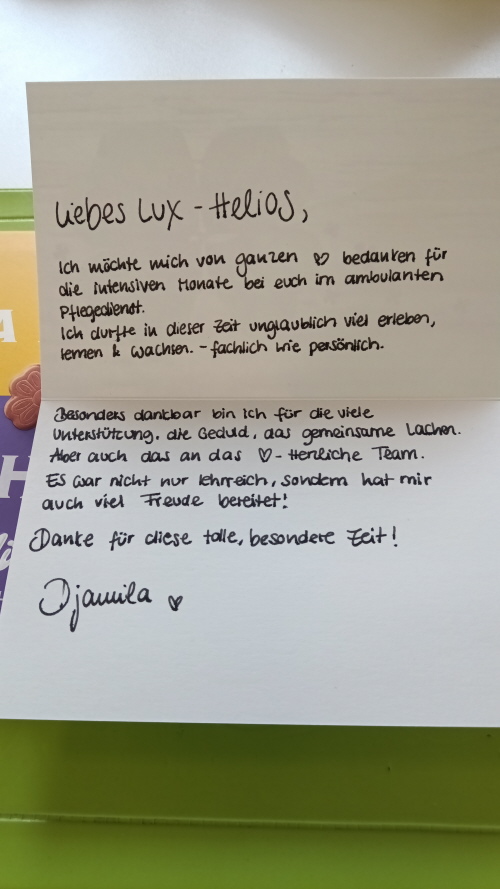 Liebes Lux - Helios,
Ich möchte mich von ganzen ♡ bedanken für
die intensiven Monate bei euch im ambulanten
Pflegedienst.
Ich durfte in dieser Zeit unglaublich viel erleben,
lernen & wachsen. - fachlich wie persönlich.
Besonders dankbar bin ich für die viele
Unterstützung, die Geduld, das gemeinsame Lachen.
Aber auch das an das ♡ - Herzliche Team.
Es war nicht nur lehrreich, sondern hat mir
auch viel Freude bereitet!
Danke für diese tolle, besondere Zeit!
Djamila ♡